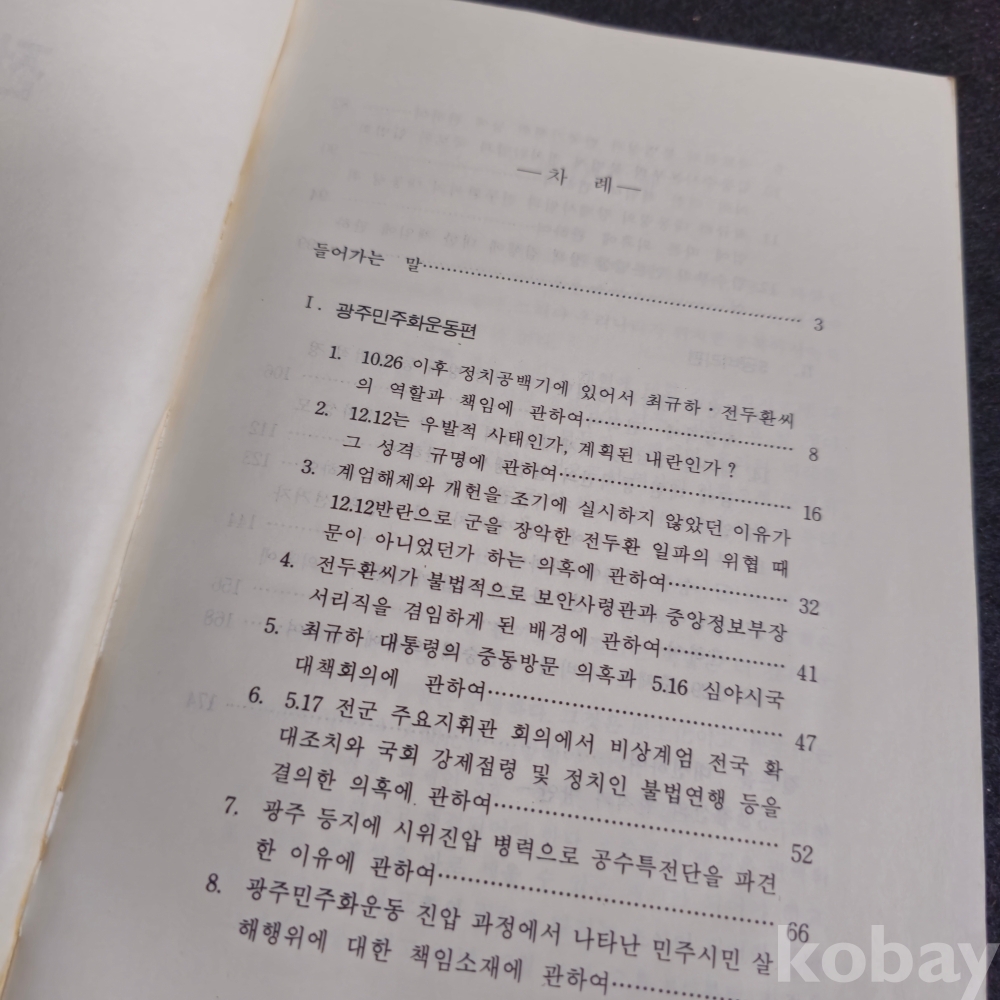 ―차 례―
들어가는 말…………3
Ⅰ. 광주민주화운동편
1. 10.26 이후 정치공백기에 있어서 최규하·전두환씨
의 역할과 책임에 관하여…………8
2. 12.12는 우발적 사태인가, 계획된 내란인가?
그 성격 규명에 관하여…………16
3. 계엄해제와 개헌을 조기에 실시하지 않았던 이유가
12.12반란으로 군을 장악한 전두환 일파의 위협 때
문이 아니었던가 하는 의혹에 관하여…………32
4. 전두환씨가 불법적으로 보안사령관과 중앙정보부장
서리직을 겸임하게 된 배경에 관하여…………41
5. 최규하 대통령의 중동방문 의혹과 5.16 심야시국
대책회의에 관하여…………47
6. 5.17 전군 주요지휘관 회의에서 비상계엄 전국 확
대조치와 국회 강제점령 및 정치인 불법연행 등을
결의한 의혹에 관하여…………52
7. 광주 등지에 시위진압 병력으로 공수특전단을 파견
한 이유에 관하여…………66
8. 광주민주화운동 진압 과정에서 나타난 민주시민 살
해행위에 대한 책임소재에 관하여…………
kobay